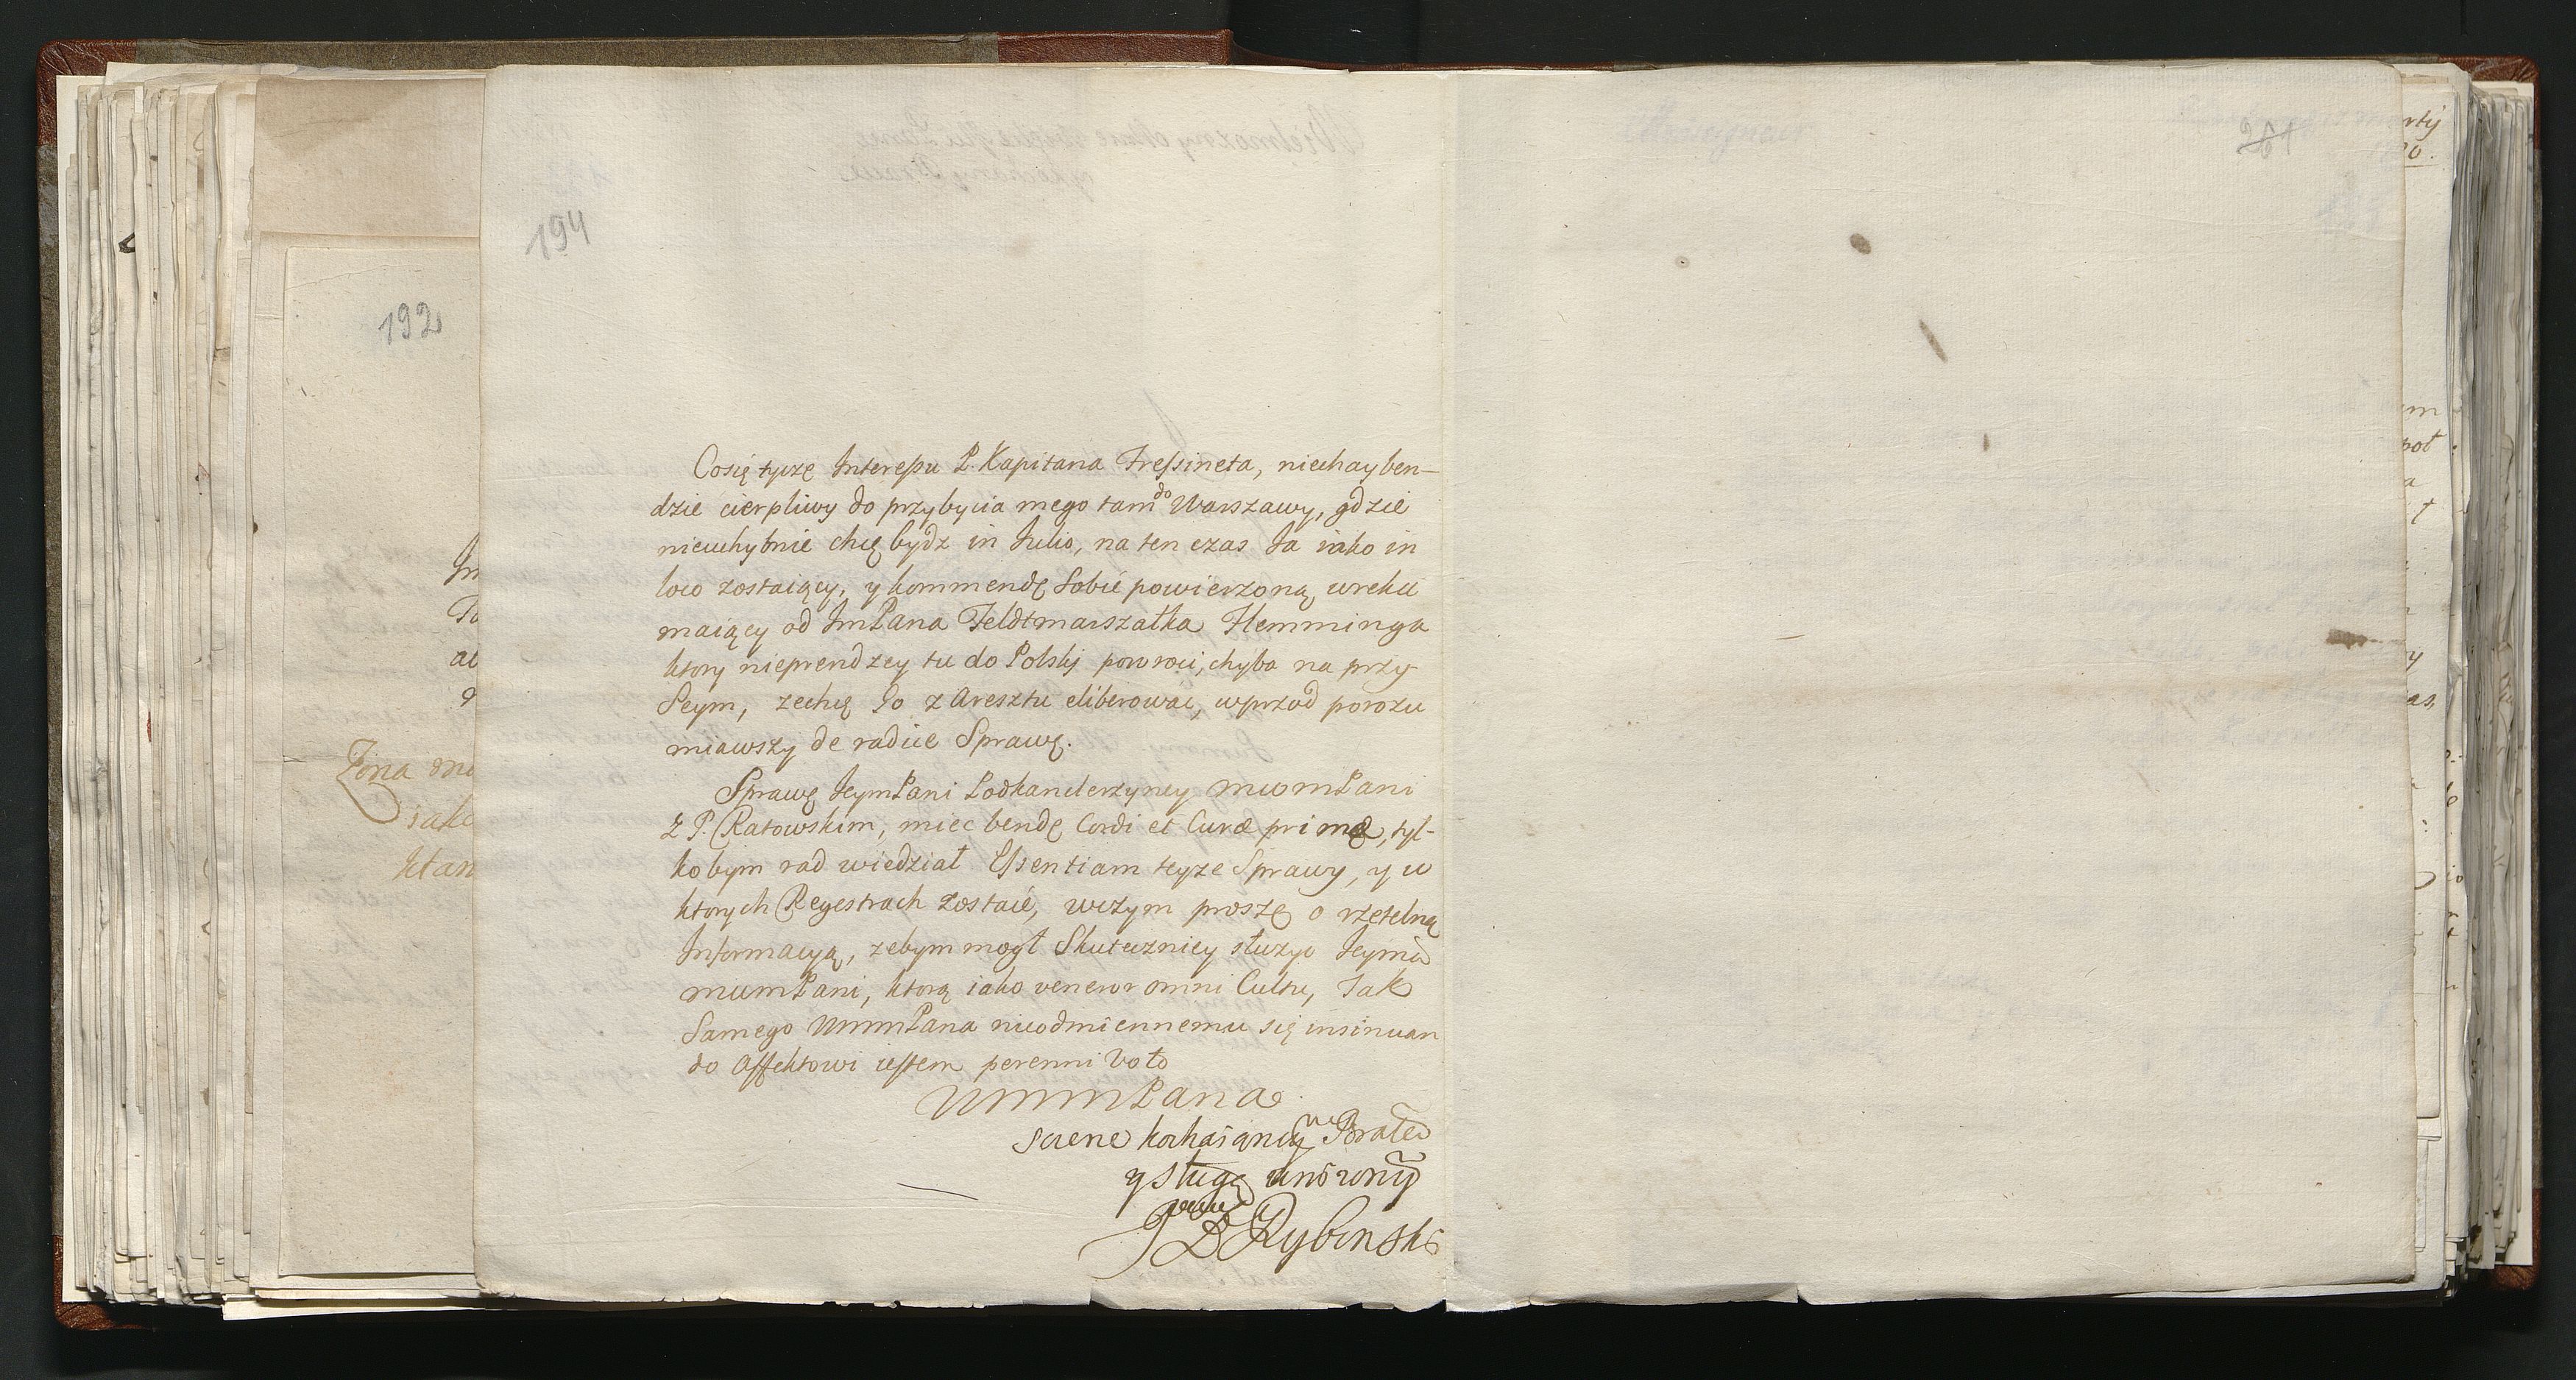 194
192
Cosię tycze Interessu P. Kapitana Fressineta, niechay ben-
dzie cierpliwy do przybycia mego tam do Warszawy, gdzie
nieuchybnie chcę bydz in Julio, na ten czas Ja iako in
loco zostaiący, y kommendę Sobie powierzoną wreku
maiący od ImPana Feldtmarszałka Flemminga
ktory nieprendzey tu do Polskj powroci, chyba na przy
Seym, zechcę Go z Aresztu eliberowac, wprzod porozu
miawszy de radice Sprawę.
Sprawę JeymPani Podkanclerzyney MwomPani
z P. Ratowskim, miec bendę Cordi et Curæ primæ, tyl-
ko bym rad wiedział Essentiam teyze Sprawy, y w
ktorych Regestrach zostaie, wczym proszę o rzetelną
Informacyą, zebym mogł Skuteczniey służyc Jeymci
mumPani, ktorą iako veneror omni Cultu, Tak
Samego WmmPana nieodmiennemu się insinuan
do Affektowi iestem perenni Voto
WmmPana
scere kochaiącey Bratem
y sługą uniżony
JD Rybinski
Żona
iako
261